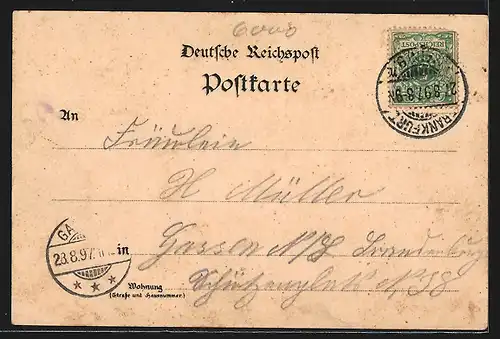 6000
Deutsche Reichspost
Postkarte
REICHSPOST
FRANKFURT
An
Fräulein
H Müller
GA
23.8.97.
in
Gassen N/L Brandenburg
Wohnung
(Straße und Hausnummer)
Schützenplatz N 38